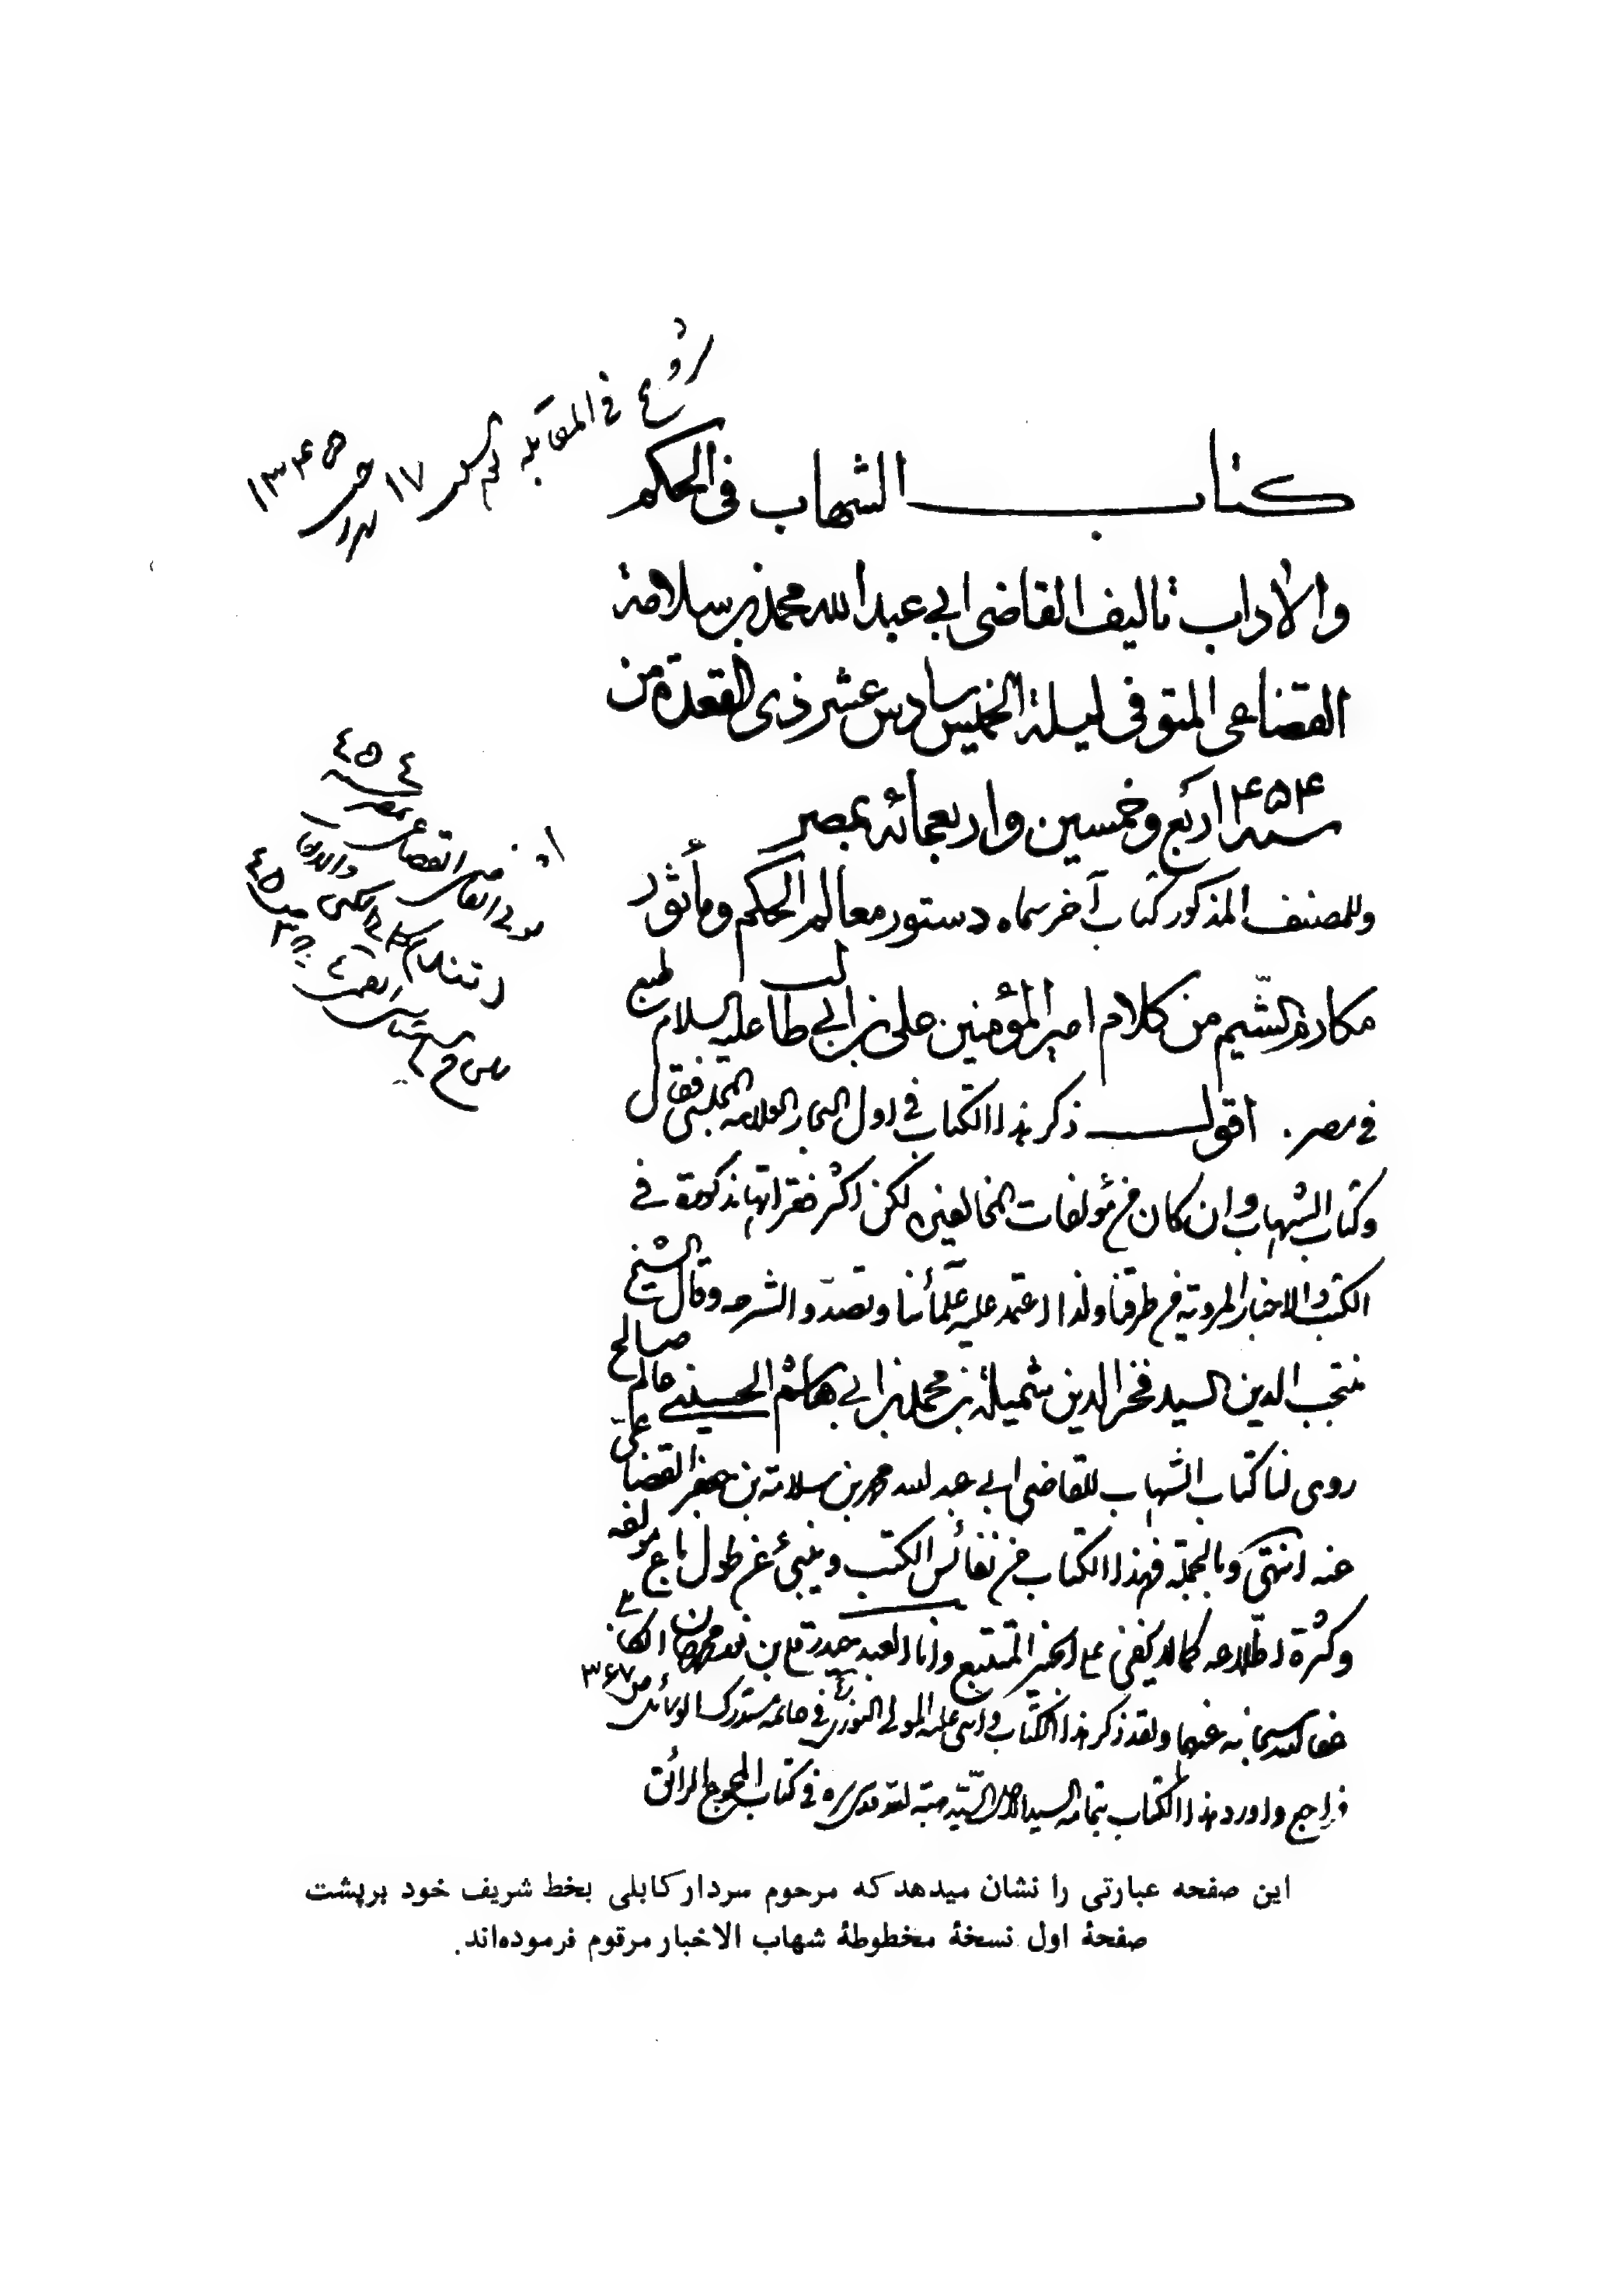 شروع فی المقابلة ١٧ رجب ١٣٤٥
كتاب الشهاب فی الحكم
والاداب تاليف القاضی ابی عبد الله محمد بن سلامة
القضاعی المتوفی ليلة الخميس سادس عشر ذی القعدة من
سنة ۴۵۴ اربع وخمسين واربعمائة بمصر
وللمصنف المذكور كتاب آخر سماه دستور معالم الحكم ومأثور
مكارم الشيم من كلام امير المؤمنين علی بن ابی طالب عليه السلام طبع
فی مصر . اقول ذكر هذا الكتاب فی اول البحار العلامة المجلسی فقال
وكتاب الشهاب وان كان من مؤلفات المخالفين لكن اكثر فقراتها مذكورة فی
الكتب والاخبار المروية من طرقنا ولذا اعتمد عليه علمائنا وتصدوا لشرحه وقال الشيخ
منتجب الدين السيد فخر الدين شميلة بن محمد بن ابی هاشم الحسينی عالم صالح
روی لنا كتاب الشهاب للقاضی ابی عبد الله محمد بن سلامة بن جعفر القضاعی
عنه انتهی وبالجملة فهذا الكتاب من نفائس الكتب وينبئ عن طول باع مؤلفه
وكثرة اطلاعه كما لا يخفی علی الخبير المتتبع وانا العبد حيدر قلی بن نور محمد خان الكابلی
عفا الله سبحانه عنهما ولقد ذكر هذا الكتاب واثنی عليه المولی النوری فی خاتمة مستدرك الوسائل ص ٣٦٧
فراجع واورد هذا الكتاب بتمامه السيد الاجل السيد هبة الله قدس سره فی كتاب المجموع الرائق
٤٥٤
این صفحه عبارتی را نشان میدهد که مرحوم سردار کابلی بخط شریف خود برپشت
صفحهٔ اول نسخهٔ مخطوطهٔ شهاب الاخبار مرقوم فرموده‌اند.